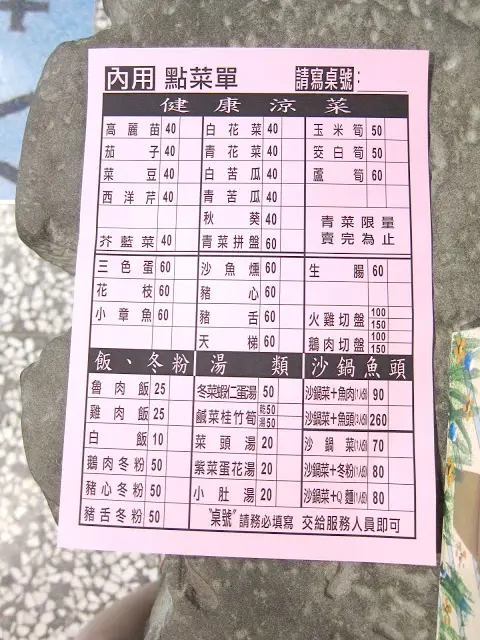 內用 點菜單 請寫桌號:
健康涼菜
高麗苗 40 白花菜 40 玉米筍 50
茄子 40 青花菜 40 筊白筍 50
菜豆 40 白苦瓜 40 蘆筍 60
西洋芹 40 青苦瓜 40
秋葵 40 青菜限量
芥藍菜 40 青菜拼盤 60 賣完為止
三色蛋 60 沙魚燻 60 生腸 60
花枝 60 豬心 60
小章魚 60 豬舌 60 火雞切盤 100 150
天梯 60 鵝肉切盤 100 150
飯、冬粉 湯類 沙鍋魚頭
魯肉飯 25 冬菜蝦仁蛋湯 50 沙鍋菜+魚肉(1人份) 90
雞肉飯 25 鹹菜桂竹筍 乾50 湯50 沙鍋菜+魚頭(3人份) 260
白飯 10 菜頭湯 20 沙鍋菜(1人份) 70
鵝肉冬粉 50 紫菜蛋花湯 20 沙鍋菜+冬粉(1人份) 80
豬心冬粉 50 小肚湯 20 沙鍋菜+Q麵(1人份) 80
豬舌冬粉 50 〝桌號〞請務必填寫 交給服務人員即可